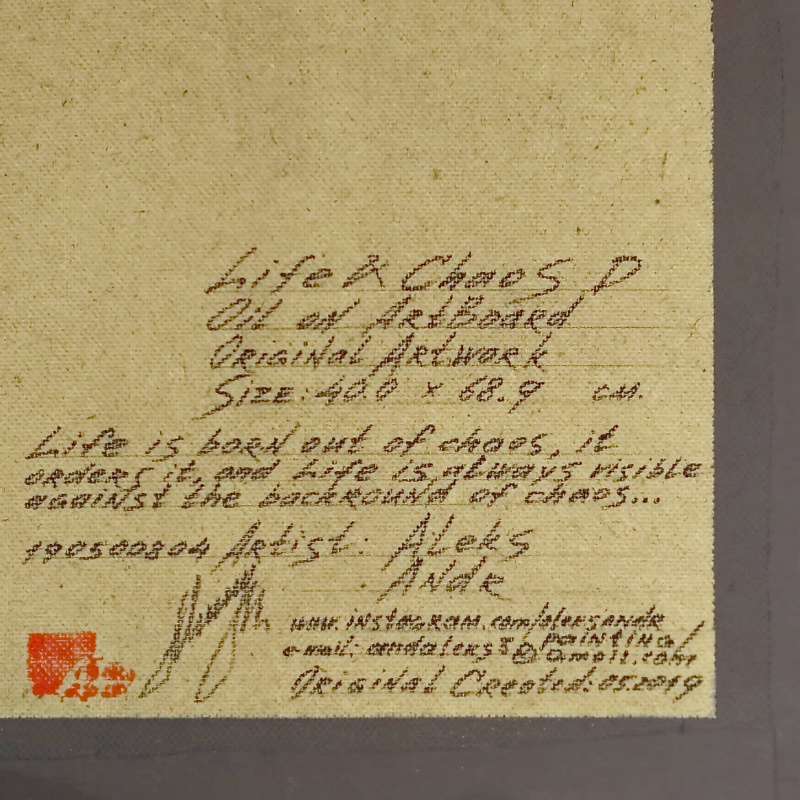 Life & Chaos D
Oil on ArtBoard
Original Artwork
Size: 40.0 x 68.9 cm.
Life is born out of chaos, it
orders it, and Life is always visible
against the background of chaos...
190500804 Artist: Aleks
Andr
www.instagram.com/aleksandr
painting/
e-mail: @gmail.com
Original Created: 05.2019